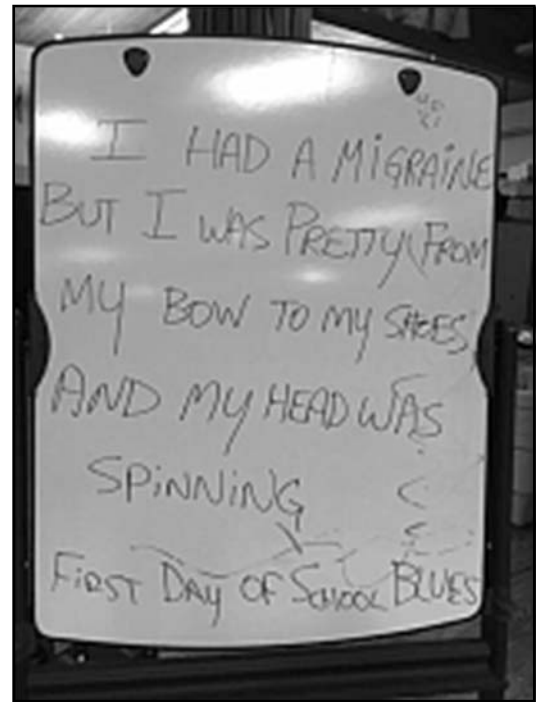 I HAD A MiGRAiNE
BUT I WAS PRETTY FROM
MY BOW TO MY SHOES
AND MY HEAD WAS
SPiNNiNG
FiRST DAY OF SCHOOL BLUES